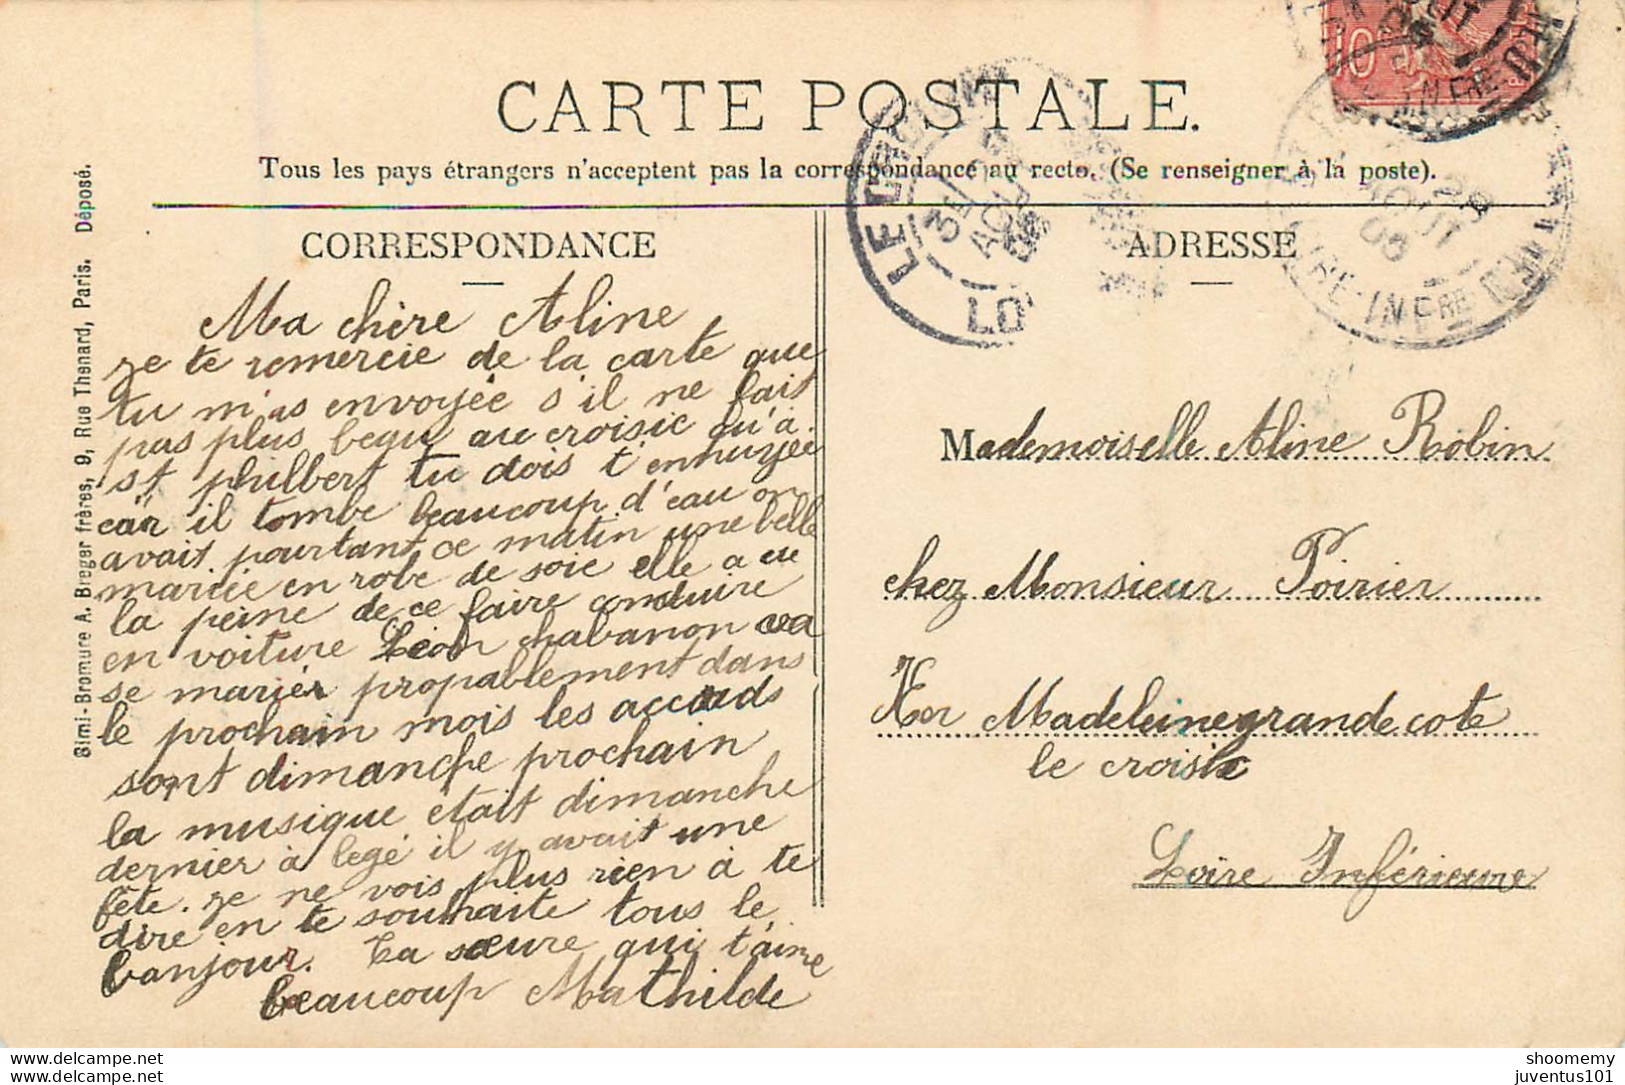 CARTE POSTALE.
Tous les pays étrangers n'acceptent pas la correspondance au recto. (Se renseigner à la poste).
Simi-Bromure A. Breger frères, 9, Rue Thenard, Paris. Déposé.
CORRESPONDANCE
Ma chère Aline
je te remercie de la carte que
tu m'as envoyée s'il ne fait
pas plus beau au croisic qu'à
St philbert tu dois t ennuyée
car il tombe beaucoup d'eau on
avait pourtant ce matin une belle
mariée en robe de soie elle a eu
la peine de ce faire conduire
en voiture Léon chabanon va
se marier propablement dans
le prochain mois les accords
sont dimanche prochain
la musique etait dimanche
dernier à legé il y avait une
fête. je ne vois plus rien à te
dire en te souhaite tous le
bonjour. Ta sœure qui t'aime
beaucoup Mathilde
ADRESSE
Mademoiselle Aline Robin
chez Monsieur Poirier
Ker Madeleine grande cote
le croisic
Loire Inférieure
10
LE CROISIC
AOUT
LO
28
AOUT
05
IRE-INFRE
shoomemy
juventus101